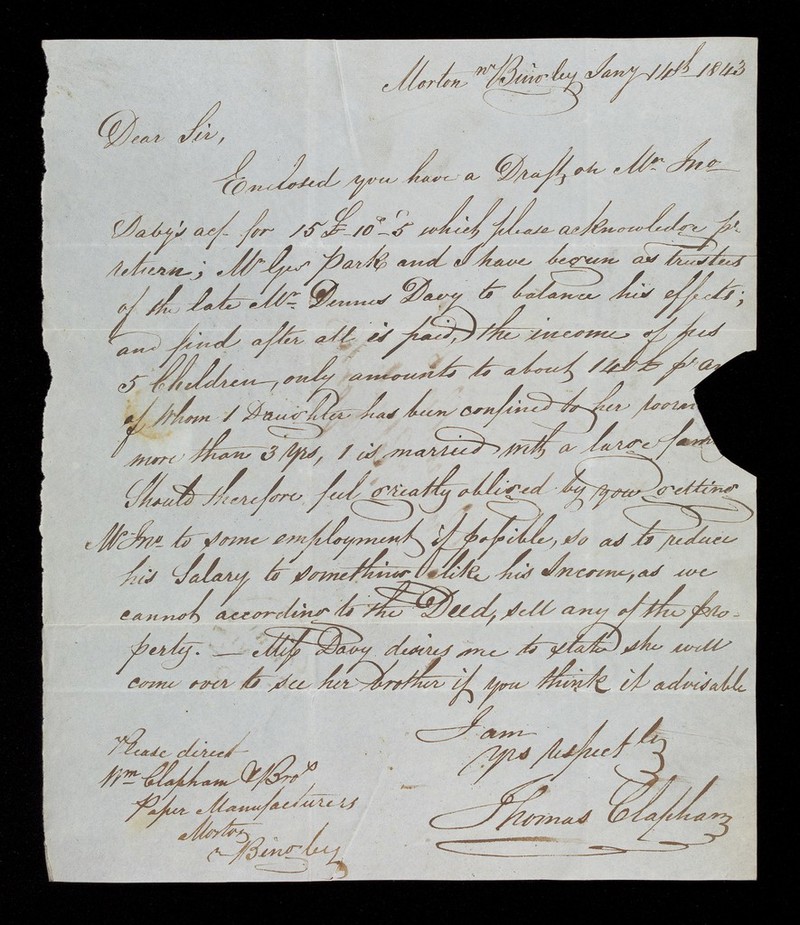 Morton nr Bingley Jany 14th 1843
Dear Sir,
Enclosed you have a Draft on Mr. Jno
Davy's act for 15£-10s-5 which please acknowledge pr
return; Mr Geo Park and I have begun as trustees
of the late Mr. Dennis Davy to balance his effects;
and find after all is paid, the income of his
5 Children, only amounts to about 140£ pr an
of whom 1 Daughter has been confined to her room
more than 3 Yrs, 1 is married with a large fam
Should therefore feel greatly obliged by your getting
Mr Jno to some employment if possible, so as to reduce
his Salary to something like his Income, as we
cannot according to the Deed, sell any of the pro-
perty. — Miss Davy desires me to state she will
come over to see her brother if you think it advisable
I am
Yrs respectly
Thomas Clapham
Please direct
Wm Clapham & Bros
Paper Manufacturers
Morton
nr Bingley